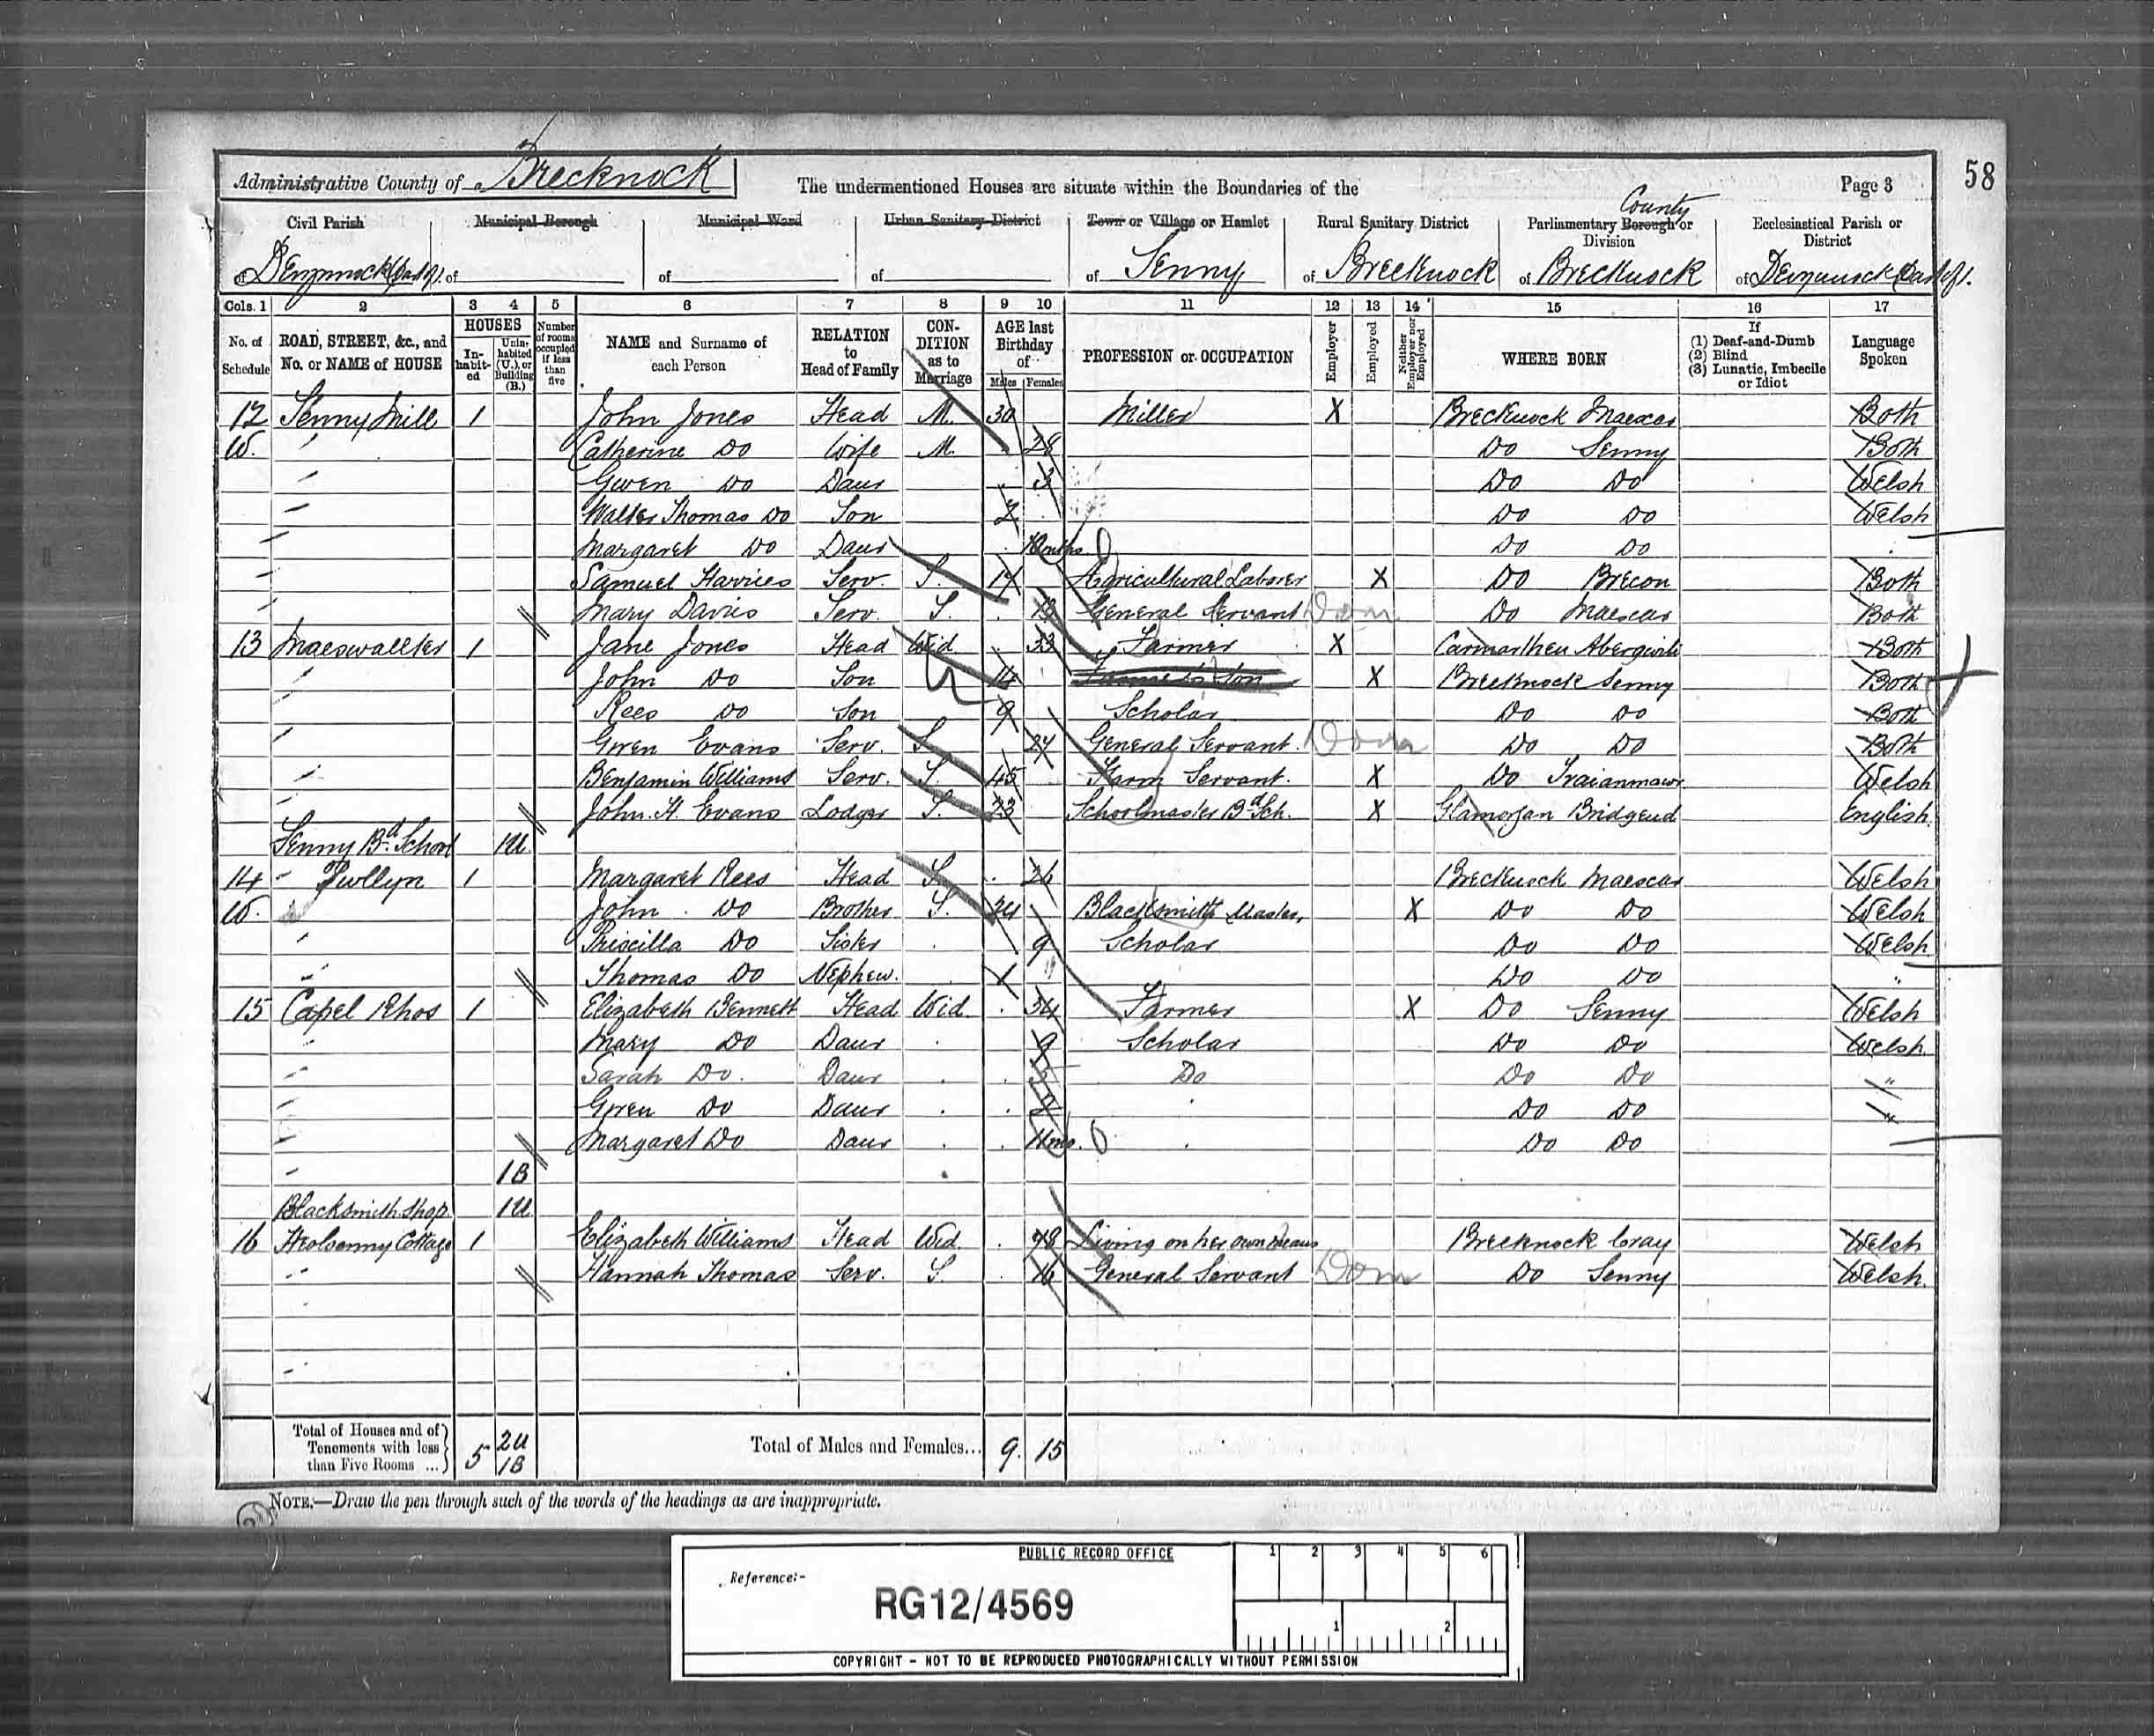 58
Administrative County of Brecknock
The undermentioned Houses are situate within the Boundaries of the
Page 3
Civil Parish
Municipal Borough
Municipal Ward
Urban Sanitary District
Town or Village or Hamlet
Rural Sanitary District
County
Parliamentary Borough or Division
Ecclesiastical Parish or District
of Devynnock (Part of). of of of of Senny of Brecknock of Brecknock of Devynnock (Part of).
Cols. 1 2 3 4 5 6 7 8 9 10 11 12 13 14 15 16 17
No. of Schedule
ROAD, STREET, &c., and No. or NAME of HOUSE
HOUSES
In-habit-ed
Unin-habited (U.), or Building (B.)
Number of rooms occupied if less than five
NAME and Surname of each Person
RELATION to Head of Family
CON-DITION as to Marriage
AGE last Birthday of
Males Females
PROFESSION or OCCUPATION
Employer
Employed
Neither Employer nor Employed
WHERE BORN
If (1) Deaf-and-Dumb (2) Blind (3) Lunatic, Imbecile or Idiot
Language Spoken
12 Senny Mill 1 John Jones Head M. 30 Miller X Brecknock Maescar Both
W. Catherine Do Wife M. 28 Do Senny Both
Gwen Do Daur 3 Do Do Welsh
Walter Thomas Do Son 2 Do Do Welsh
Margaret Do Daur Do Do
Samuel Harries Serv. S. 17 Agricultural Laborer X Do Brecon Both
Mary Davies Serv. S. General Servant Dom Do Maescar Both
13 Maeswallter 1 Jane Jones Head Wid 33 Farmer X Carmarthen Abergwili Both
John Do Son 14 Farmer's Son X Brecknock Senny Both
Rees Do Son 9 Scholar Do Do Both
Gwen Evans Serv. S 24 General Servant. Dom Do Do Both
Benjamin Williams Serv. S. 45 Farm Servant. X Do Traianmawr Welsh
John. H. Evans Lodger S. 23 Schoolmaster Bd Sch. X Glamorgan Bridgend English.
Senny Bd School 1U.
14 Pwllyn 1 Margaret Rees Head S 26 Brecknock Maescar Welsh
W. John Do Brother S. 24 Blacksmith Master, X Do Do Welsh
Priscilla Do Sister 9 Scholar Do Do Welsh
Thomas Do Nephew. 1 Do Do "
15 Capel Rhos 1 Elizabeth Bennett Head Wid. 34 Farmer X Do Senny Welsh
Mary Do Daur 9 Scholar Do Do Welsh
Sarah Do. Daur 5 Do Do Do "
Gwen Do Daur 2 Do Do "
Margaret Do Daur 11mo. Do Do
1B
Blacksmith Shop. 1U
16 Heolsenny Cottage 1 Elizabeth Williams Head Wid. 78 Living on her own means Brecknock Cray Welsh
Hannah Thomas Serv. S. 16 General Servant Dom Do Senny Welsh.
Total of Houses and of Tenements with less than Five Rooms ... 5 2U 1B
Total of Males and Females... 9. 15
NOTE.—Draw the pen through such of the words of the headings as are inappropriate.
PUBLIC RECORD OFFICE
1 2 3 4 5 6
Reference:-
RG12/4569
1 2
COPYRIGHT - NOT TO BE REPRODUCED PHOTOGRAPHICALLY WITHOUT PERMISSION